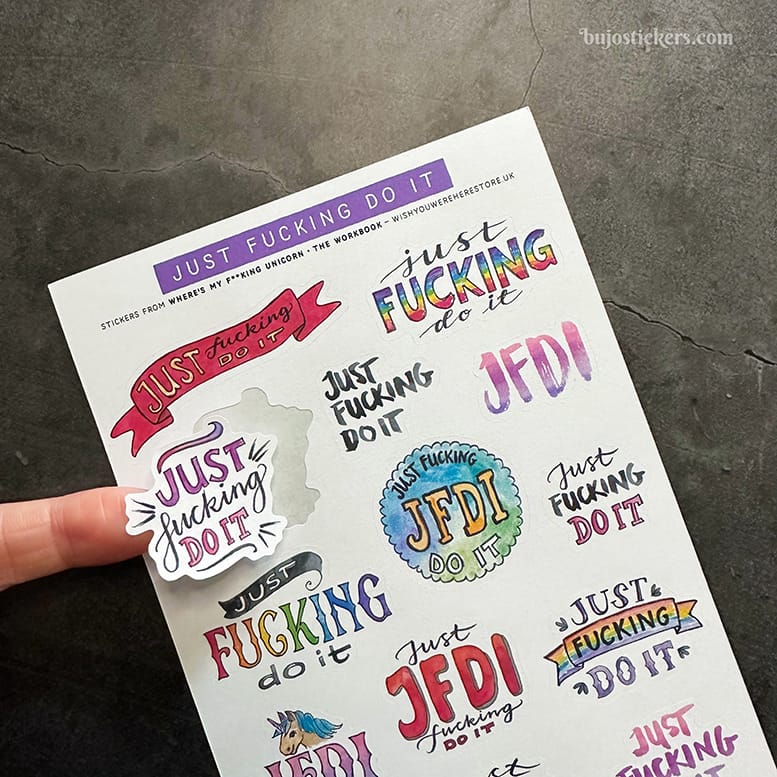 bujostickers.com
JUST FUCKING DO IT
STICKERS FROM WHERE'S MY F**KING UNICORN • THE WORKBOOK – WISHYOUWEREHERESTORE.UK
just
FUCKING
do it
JUST fucking
DO IT
JUST
FUCKING
DO IT
JFDI
JUST
fucking
DO IT
JUST FUCKING
JFDI
DO IT
Just
FUCKING
DO IT
JUST
FUCKING
do it
Just
JFDI
fucking
DO IT
JUST
FUCKING
DO IT
JFDI
JUST
FUCKING